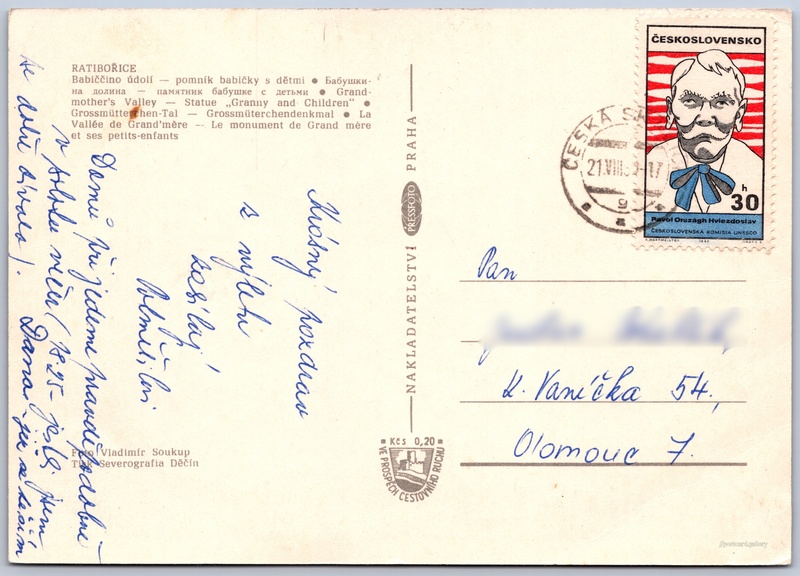 RATIBOŘICE
Babiččino údolí — pomník babičky s dětmi ● Бабушки-
на долина — памятник бабушке с детьми ● Grand-
mother's Valley — Statue „Granny and Children" ●
Grossmütterchen-Tal — Grossmütterchendenkmal ● La
Vallée de Grand'mère — Le monument de Grand mère
et ses petits-enfants
Krásný pozdrav
s výletu
zasílají
Domů přijedeme pravděpodobně
v sobotu večer (18.25 –
Dana
Foto Vladimír Soukup
Tisk Severografia Děčín
NAKLADATELSTVÍ PRESSFOTO PRAHA
Kčs 0,20
VE PROSPĚCH CESTOVNÍHO RUCHU
ČESKÁ
21.VIII
ČESKOSLOVENSKO
h
30
Pavol Országh Hviezdoslav
ČESKOSLOVENSKÁ KOMISIA UNESCO
Pan
K. Vaníčka 54,
Olomouc 7.